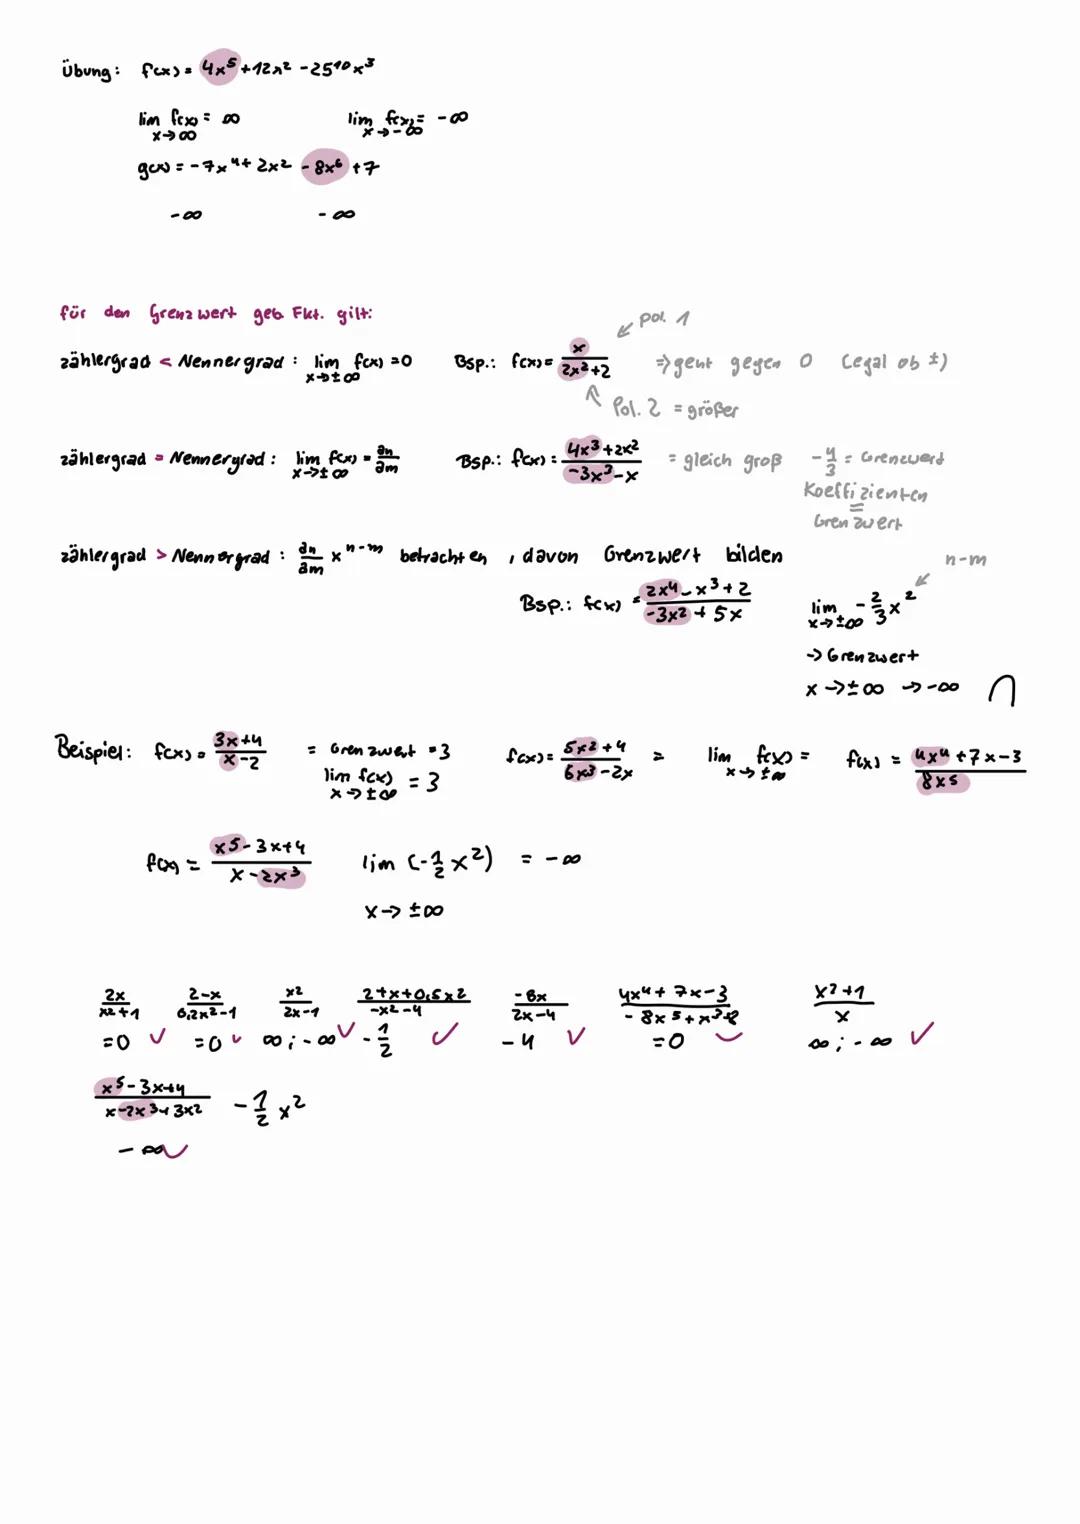 Übung: f(x) = 4x⁵ + 12x² - 25¹⁰x³
lim f(x) = ∞ lim f(x) = -∞
x→∞ x→-∞
g(x) = -7x⁴ + 2x² - 8x⁶ + 7
-∞ -∞
für den Grenzwert geb. Fkt. gilt:
pol. 1
zählergrad < Nennergrad : lim f(x) = 0 Bsp.: f(x) = x / (2x²+2) ⇒ geht gegen 0 (egal ob ±)
x→±∞
Pol. 2 = größer
zählergrad = Nennergrad : lim f(x) = an/am Bsp.: f(x) = (4x³+2x²) / (-3x³-x) = gleich groß -4/3 = Grenzwert
x→±∞
Koeffizienten
=
Grenzwert
zählergrad > Nennergrad : an/am x^n-m betrachten , davon Grenzwert bilden
n-m
Bsp.: f(x) = (2x⁴-x³+2) / (-3x²+5x) lim -2/3 x²
x→±∞
→ Grenzwert
x→±∞ → -∞
Beispiel: f(x) = (3x+4) / (x-2) = Grenzwert = 3 f(x) = (5x²+4) / (6x³-2x) = lim f(x) = f(x) = (4x⁴+7x-3) / 8x⁵
lim f(x) = 3 x→±∞
x→±∞
f(x) = (x⁵-3x+4) / (x-2x³) lim (-1/2 x²) = -∞
x→±∞
2x / (x²+1) (2-x) / (0,2x²-1) x² / (2x-1) (2+x+0,5x²) / (-x²-4) -8x / (2x-4) (4x⁴+7x-3) / (-8x⁵+x³-8) (x²+1) / x
=0 ✓ =0 ✓ ∞;-∞ ✓ -1/2 ✓ -4 ✓ =0 ✓ ∞;-∞ ✓
(x⁵-3x+4) / (x-2x³+3x²) -1/2 x²
-∞ ✓